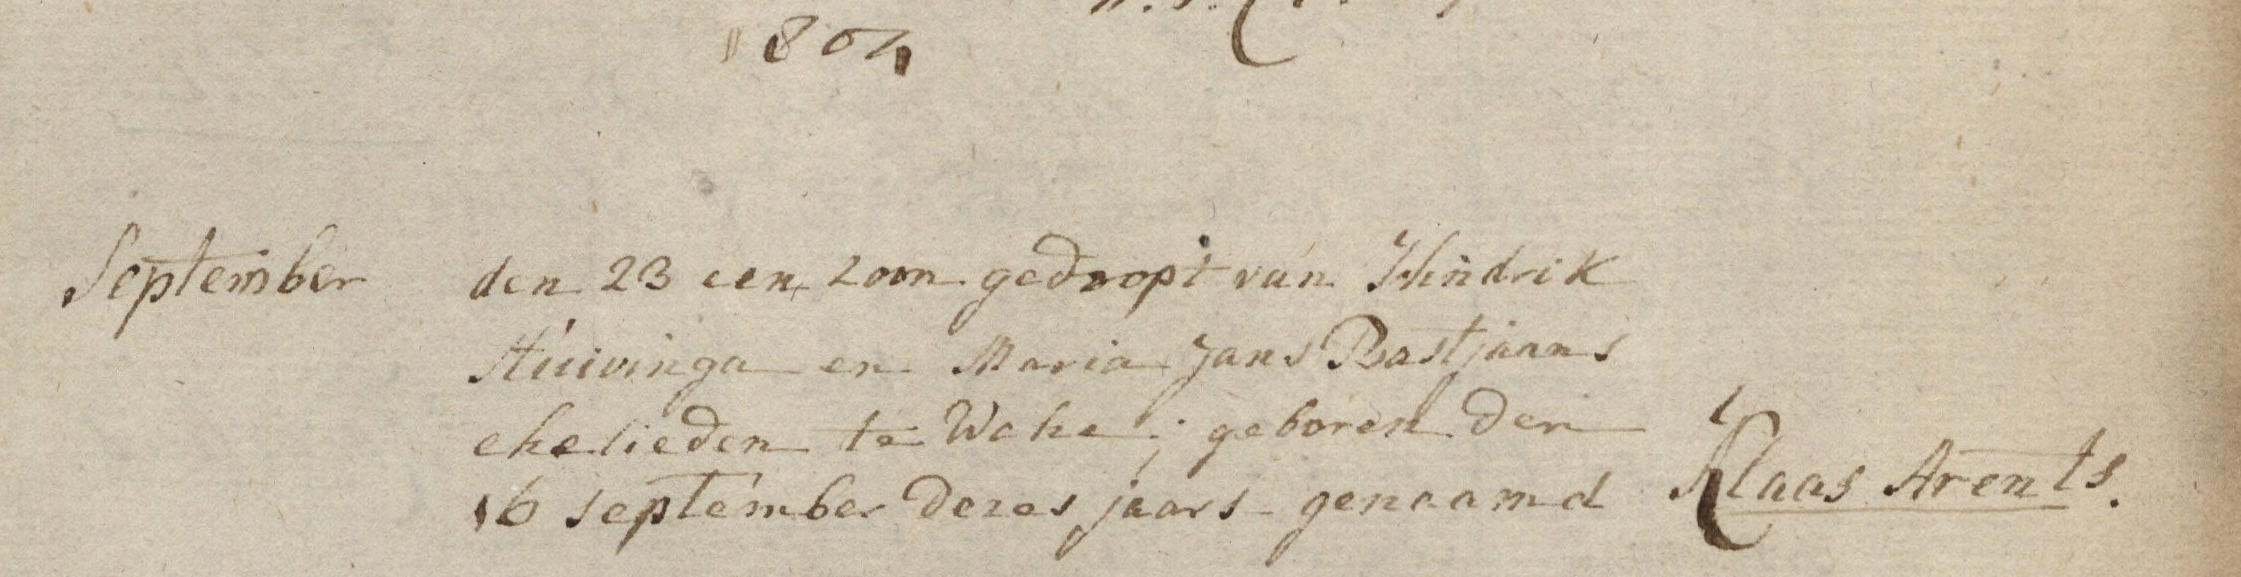 1804
September den 23 een zoon gedoopt van Hindrik
Huivinga en Maria Jans Bastjaans
ehelieden te Wehe; geboren den
16 september dezes jaars genaamd Klaas Arents.